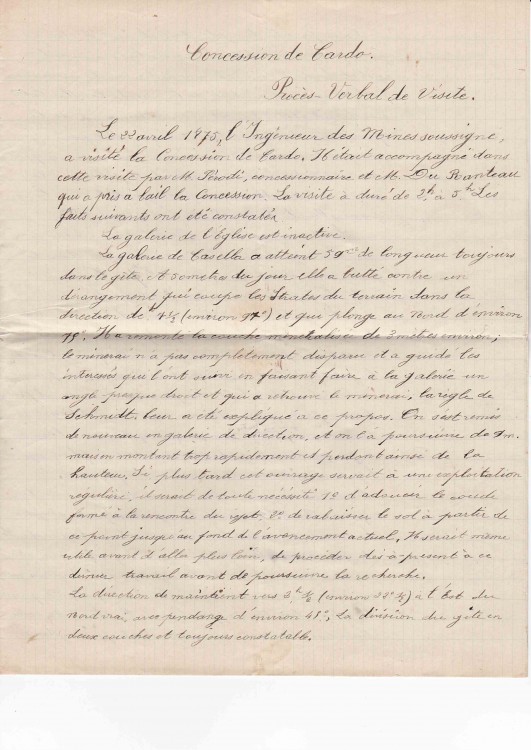 Concession de Cardo.
Procès-Verbal de Visite.
Le 22 avril 1875, l'Ingénieur des Mines soussigné,
a visité la Concession de Cardo. Il était accompagné dans
cette visite par M. concessionnaire et M. Du
qui a pris à bail la Concession. La visite à duré de 2h. à 5h. Les
faits suivants ont été constatés
La galerie de l'Église est inactive.
La galerie de Casella a atteint de longueur toujours
dans le gîte. A 50 metres du jour elle a butté contre un
dérangement qui coupe les Strates du terrain dans la
direction de (environ ) et qui plonge au Nord d'environ
75°. Il a remonté la couche minéralisée de 3 mètres environ;
le minerai n'a pas complètement disparu et a guidé les
interessés qui l'ont suivi en faisant faire à la galerie un
angle presque droit et qui a retrouvé le minerai, la règle de
Schmidt leur a été expliqué a ce propos. On s'est remis
de nouveau en galerie de direction, et on l'a poursuivie de
mais en montant trop rapidement et perdant ainsi de la
hauteur. Si plus tard cet ouvrage servait à une exploitation
régulière, il serait de toute nécessité 1° d'adoucir le coude
formé à la rencontre du 2° de rabaisser le sol à partir de
ce point jusqu'au fond de l'avancement actuel. Il serait même
utile avant d'aller plus loin, de procéder dès à-présent à ce
dernier travail avant de poursuivre la recherche.
La direction se maintient vers 3h ½ (environ 52° ½) à l'Est du
Nord vrai, avec pendage d'environ 45°, La division du gîte en
deux couches est toujours constatable.